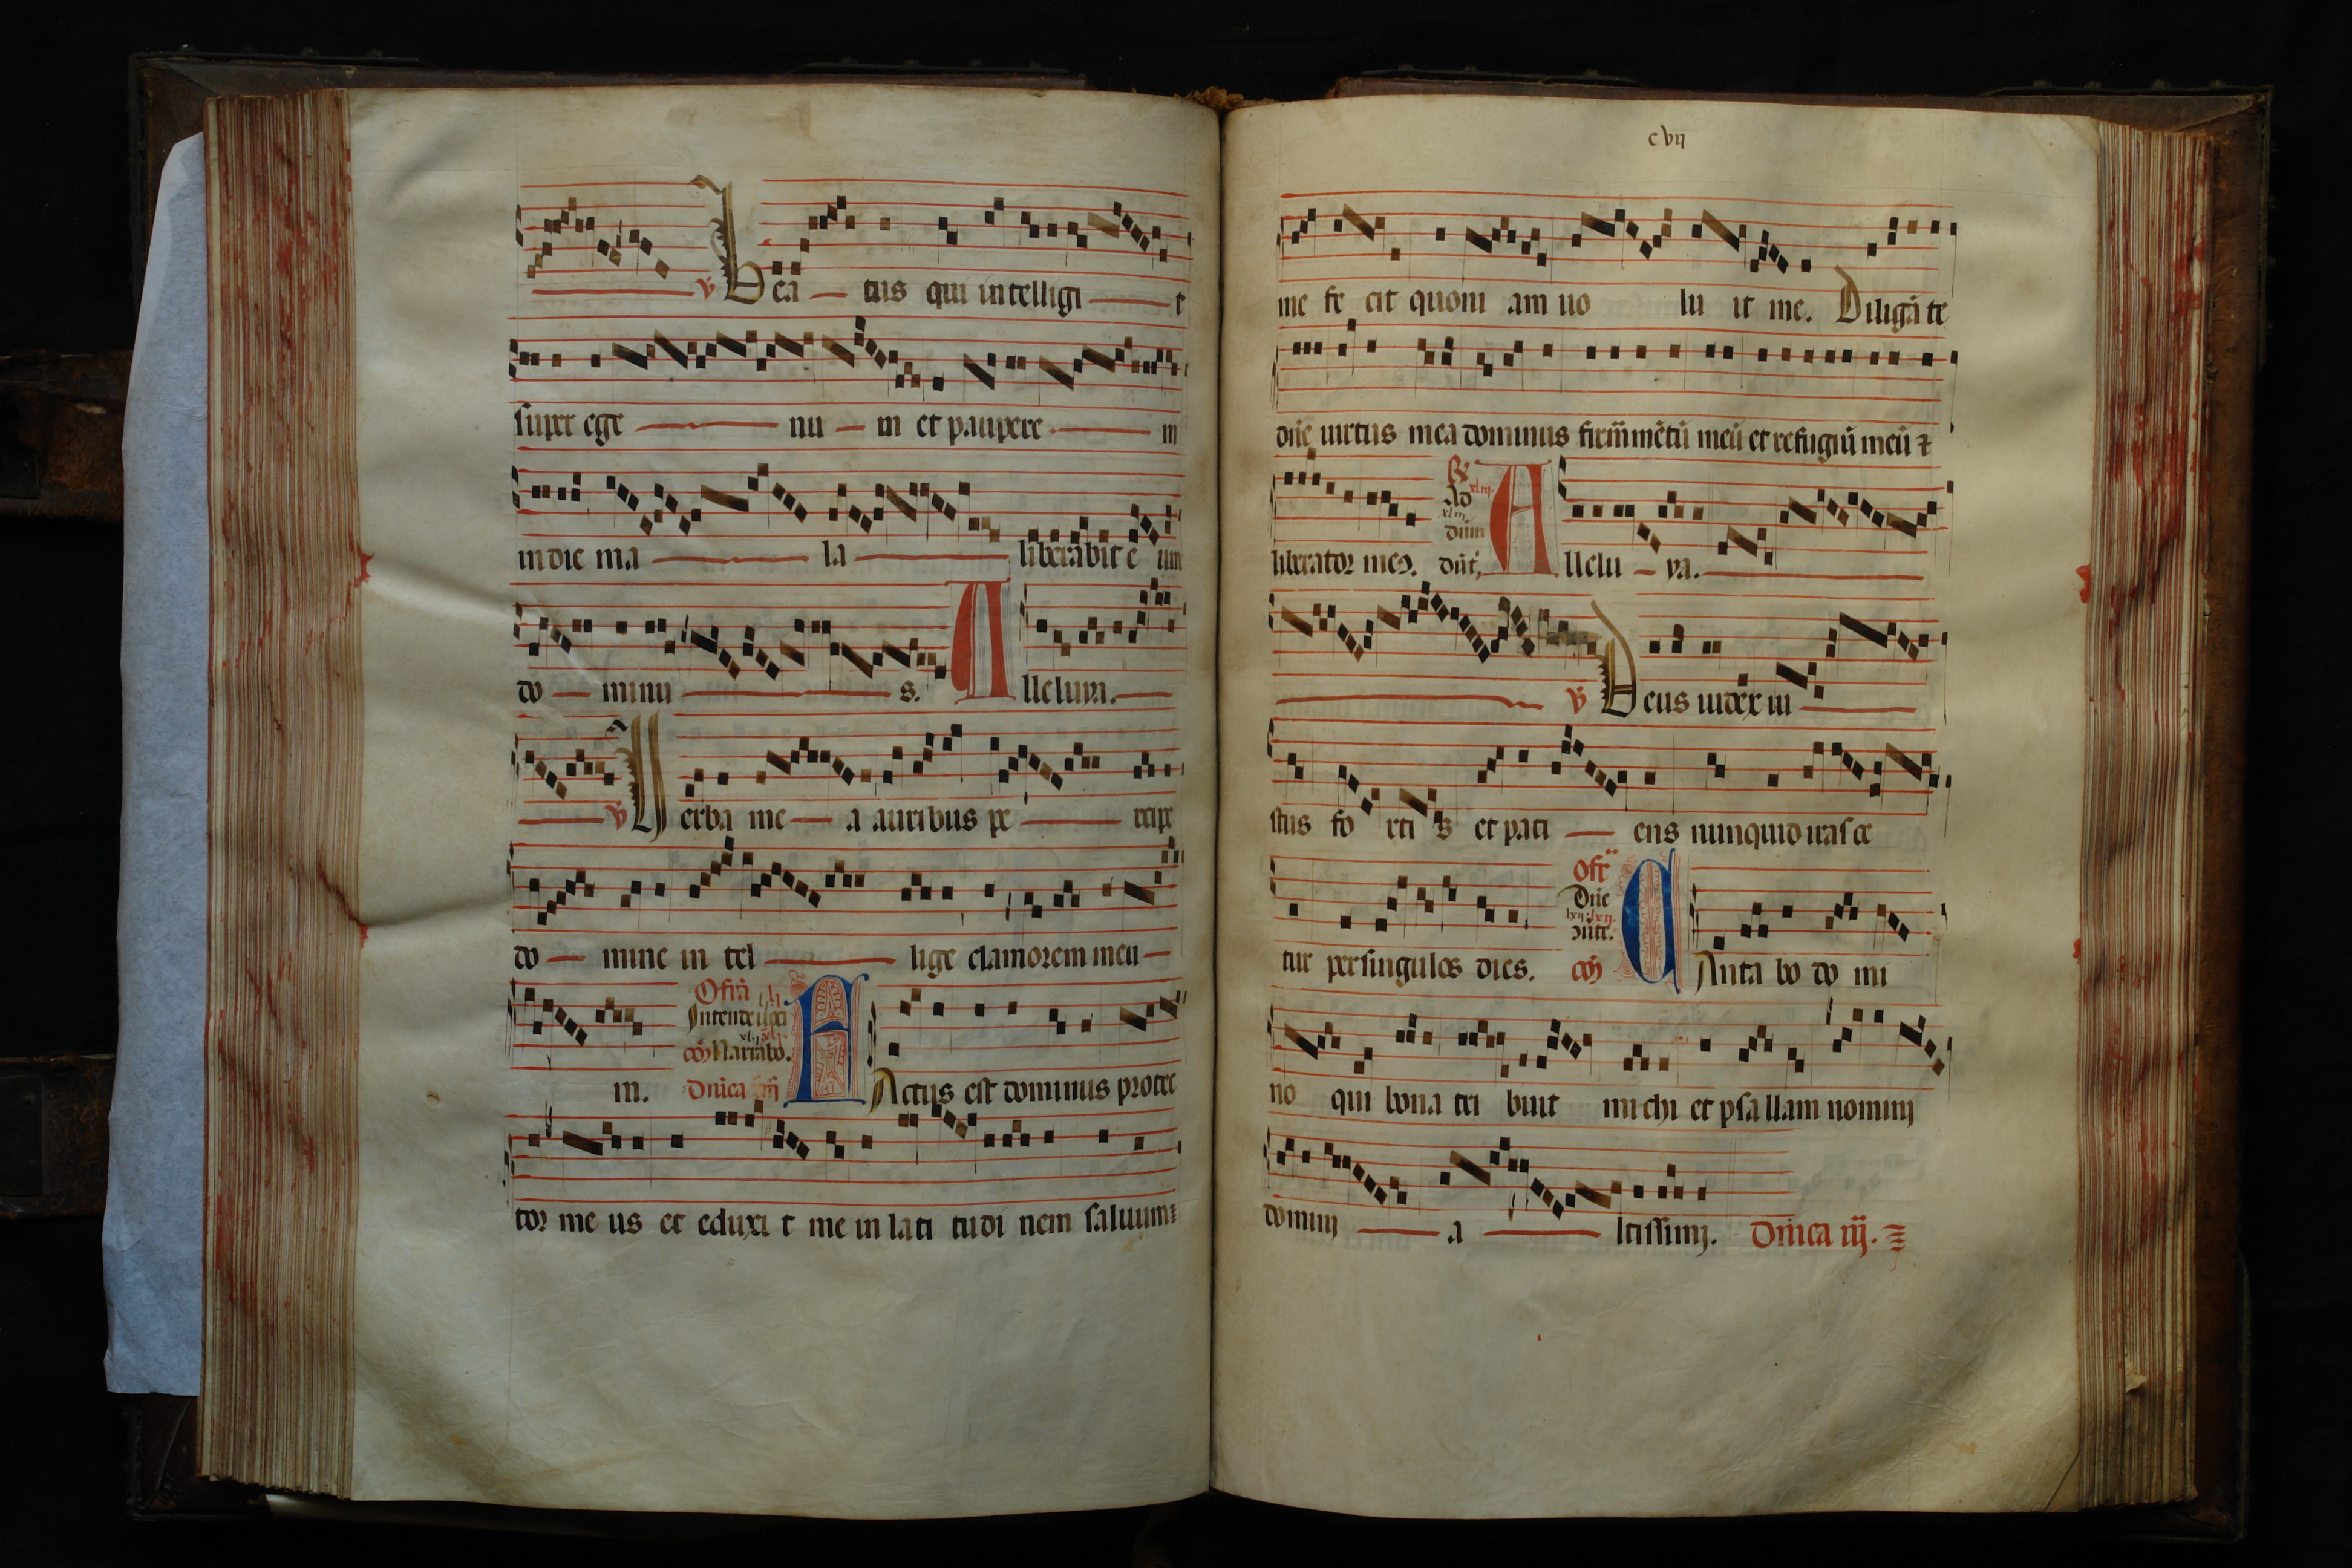 v Bea tus qui intelligi t
super ege nu m et paupere m
in die ma la liberabit e um
do minu s. A lleluya.
v Verba me a auribus pe rcipe
do mine in tel lige clamorem meu
Ofră
Intende
cōȝ Narrabo.
m. Dn̄ica F Actus est dominus protec
tor me us et eduxi t me in lati tudi nem saluum
cvij
me fe cit quoni am uo lu it me. Diligā te
dn̄e uirtus mea dominus firmm̄ētū meū et refugiū meū ⁊
liberator meꝰ. A llelu ya.
v̄ Deus iudex iu
stus fo rti s et pati ens nunquid irasce
Ofr̄
Dn̄e
tur per singulos dies. cōȝ C Anta bo do mi
no qui bona tri buit mi chi et psa llam nomini
domini a ltissimi. Dn̄ica iij.